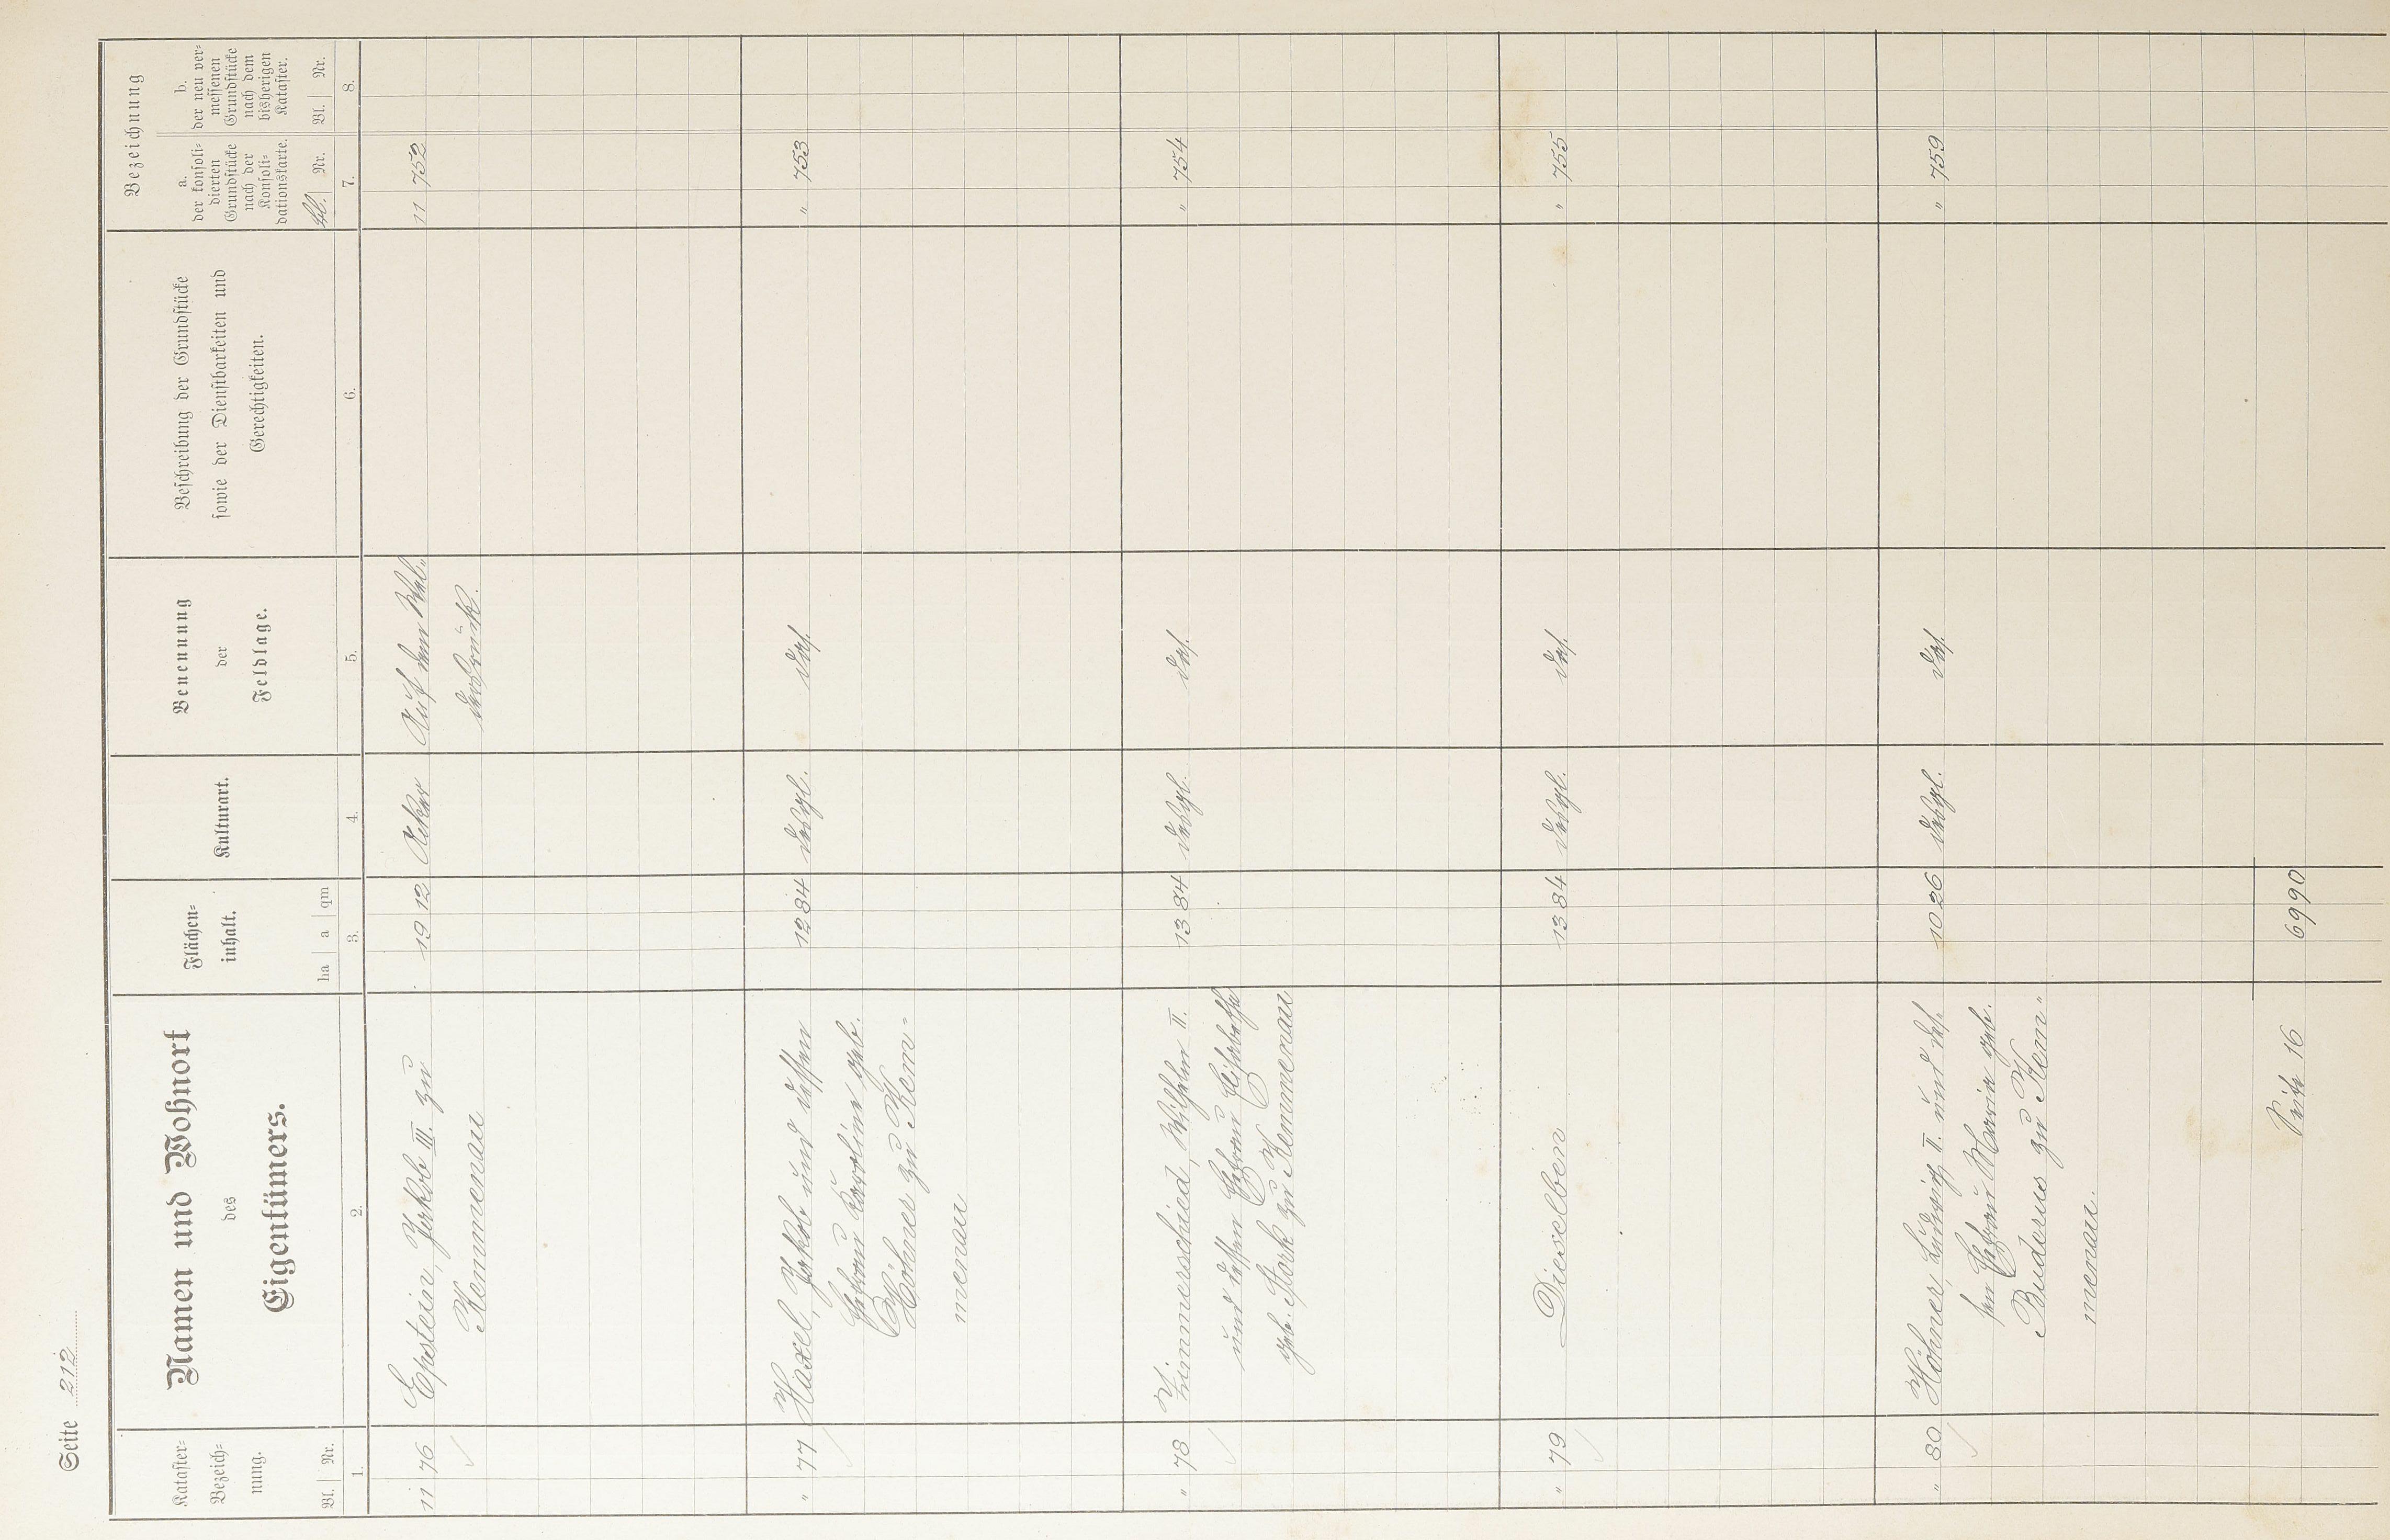 Seite 212
Kataster-
Bezeich-
nung.
Bl. Nr.
1.
Namen und Wohnort
des
Eigentümers.
2.
Flächen-
inhalt.
ha a qm
3.
Kulturart.
4.
Benennung
der
Feldlage.
5.
Beschreibung der Grundstücke
sowie der Dienstbarkeiten und
Gerechtigkeiten.
6.
Bezeichnung
a.
der konsoli-
dierten
Grundstücke
nach der
Konsoli-
dationskarte.
Bl. Nr.
7.
b.
der neu ver-
messenen
Grundstücke
nach dem
bisherigen
Kataster.
Bl. Nr.
8.
11 76 Epstein, Jakob III. zu 19 12 Acker Auf dem 11 752
Kemmenau
" 77 Haxel, Jakob und dessen 12 84 desgl. dgl. " 753
Ehefrau Karoline geb.
Höhner zu Kem-
menau
" 78 Zimmerschied, Wilhelm II. 13 84 desgl. dgl. " 754
und dessen Ehefrau Elisabethe
geb. Stork zu Kemmenau
" 79 Dieselben 13 84 desgl. dgl. " 755
" 80 Höhner, Ludwig II. und des- 10 26 desgl. dgl. " 759
sen Ehefrau Maria geb.
Buderus zu Kem-
menau.
Seite 16 69 90